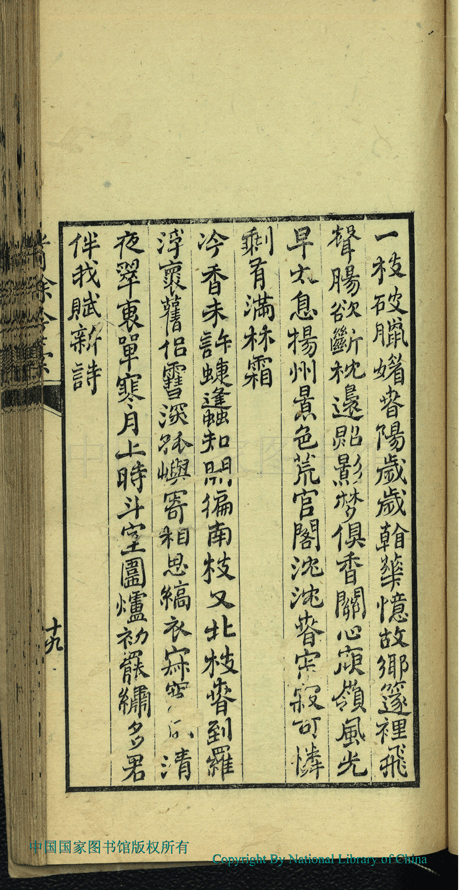 一枝破臘媚春陽歲歲翰華憶故鄉篴裡飛
聲腸欲斷枕邊照影夢俱香關心庾嶺風光
早太息揚州景色荒官閣沈沈春寂可憐
剩有滿林霜
冷香未許蜨蠭知開徧南枝又北枝春到羅
浮舊侶雪深孤嶼寄相思縞衣寂清
夜翠褏單寒月上時斗室圍爐初罷繡多君
伴我賦新詩
十九
中国国家图书馆版权所有
Copyright By National Library of China